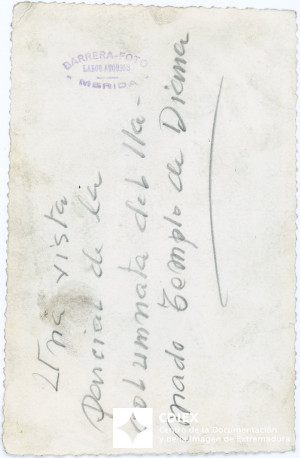 BARRERA-FOTO
LABORATORIO
MERIDA
Una vista
parcial de la
columnata del lla-
mado Templo de Diana
CDIEX
Centro de la Documentación
y de la Imagen de Extremadura